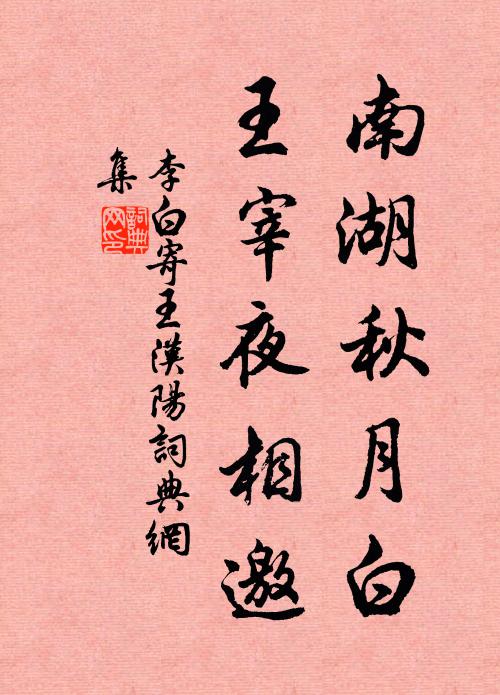 南湖秋月白
王宰夜相邀
李白寄王漢陽詞典網
集
詞典
网印